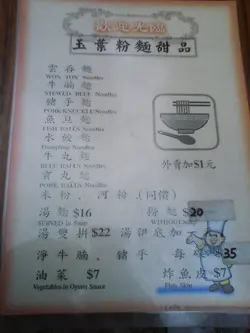 歡迎光臨
玉葉粉麵甜品
雲吞麵
WON TON Noodles
牛腩麵
STEWED BEEF Noodles
豬手麵
PORK KNUCKLE Noodles
魚旦麵
FISH BALLS Noodles
水餃麵
Dumpling Noodles
牛丸麵
BEEF BALLS Noodles
貢丸麵
PORK BALLS Noodles
外賣加$1元
米粉、河粉(同價)
湯麵$16 粉麵$20
SERVED in Soup
湯雙拼$22 湯伊底加
淨牛腩，豬手 每 35
油菜 $7 炸魚皮$7
Vegetables in Oyster Sauce Fish Skin